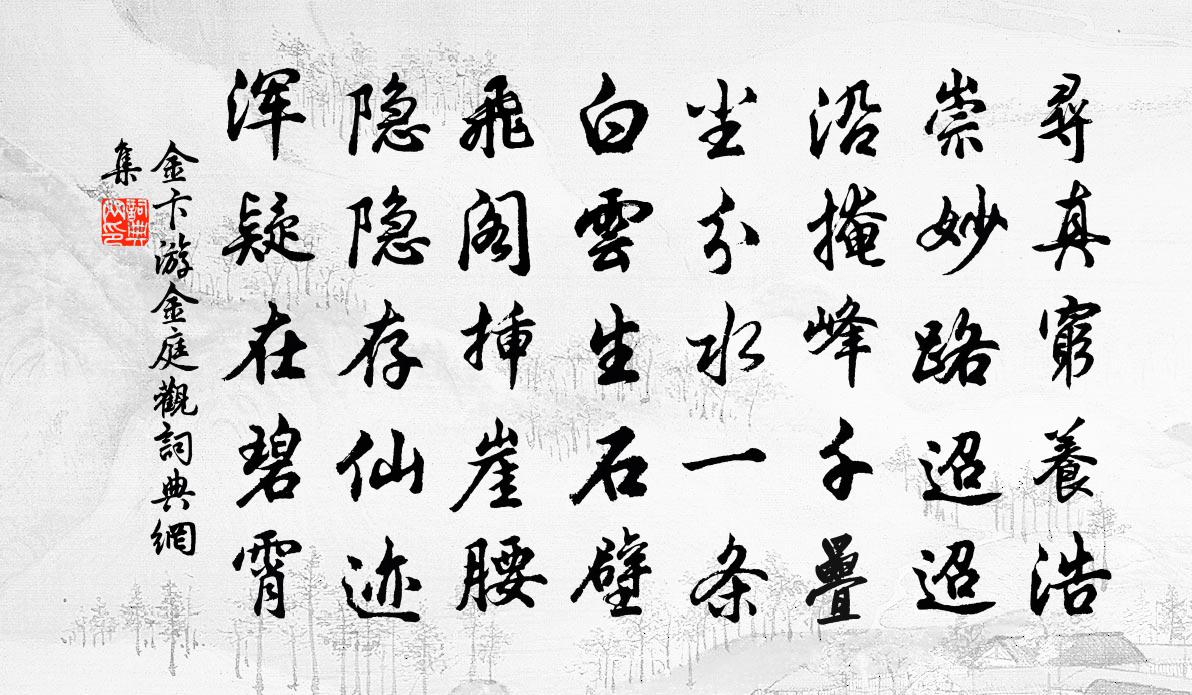 尋真窮養浩
崇妙路迢迢
沿掩峰千疊
坐分水一条
白雲生石壁
飛阁插崖腰
隐隐存仙迹
浑疑在碧霄
金卞游金庭觀詞典網
集
詞典
网印